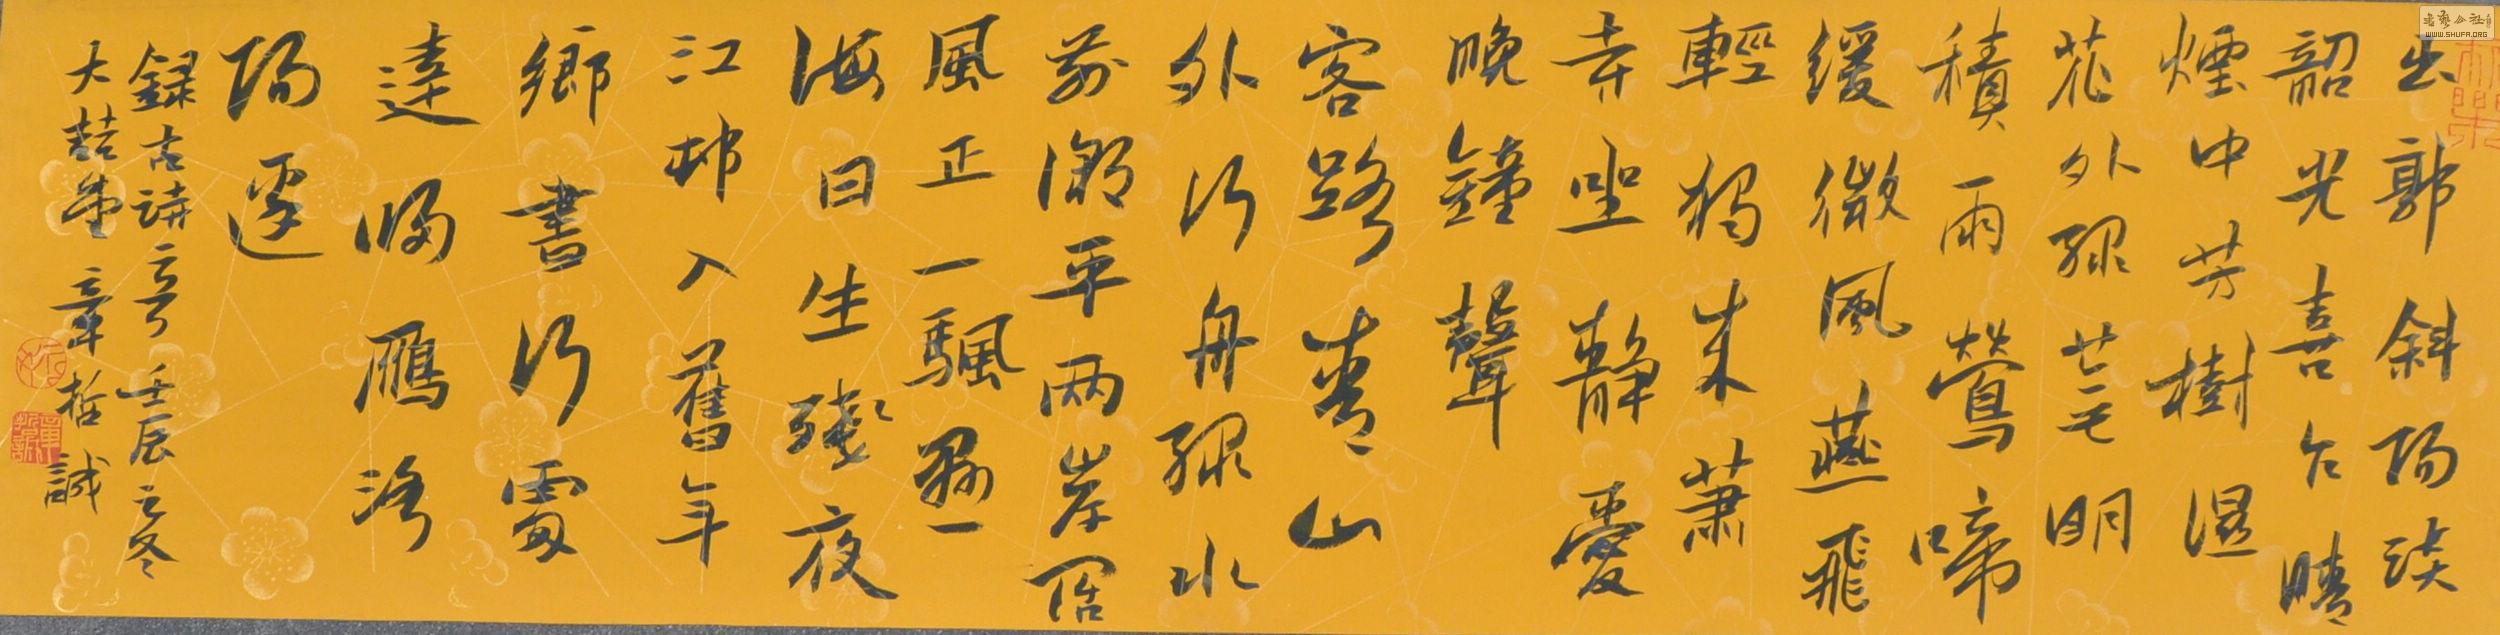 出郭斜陽淡
韶光喜乍晴
煙中芳樹濕
花外綠芒明
積雨鶯啼
緩微風燕飛
輕獨來蕭
寺坐靜憂
晚鐘聲
客路青山
外行舟綠水
前潮平兩岸闊
風正一颿懸
海日生殘夜
江邨入舊年
鄉書行處
達歸雁洛
陽邊
錄古詩二首 壬辰之冬
大喆堂 章哲誠
書藝公社
WWW.SHUFA.ORG